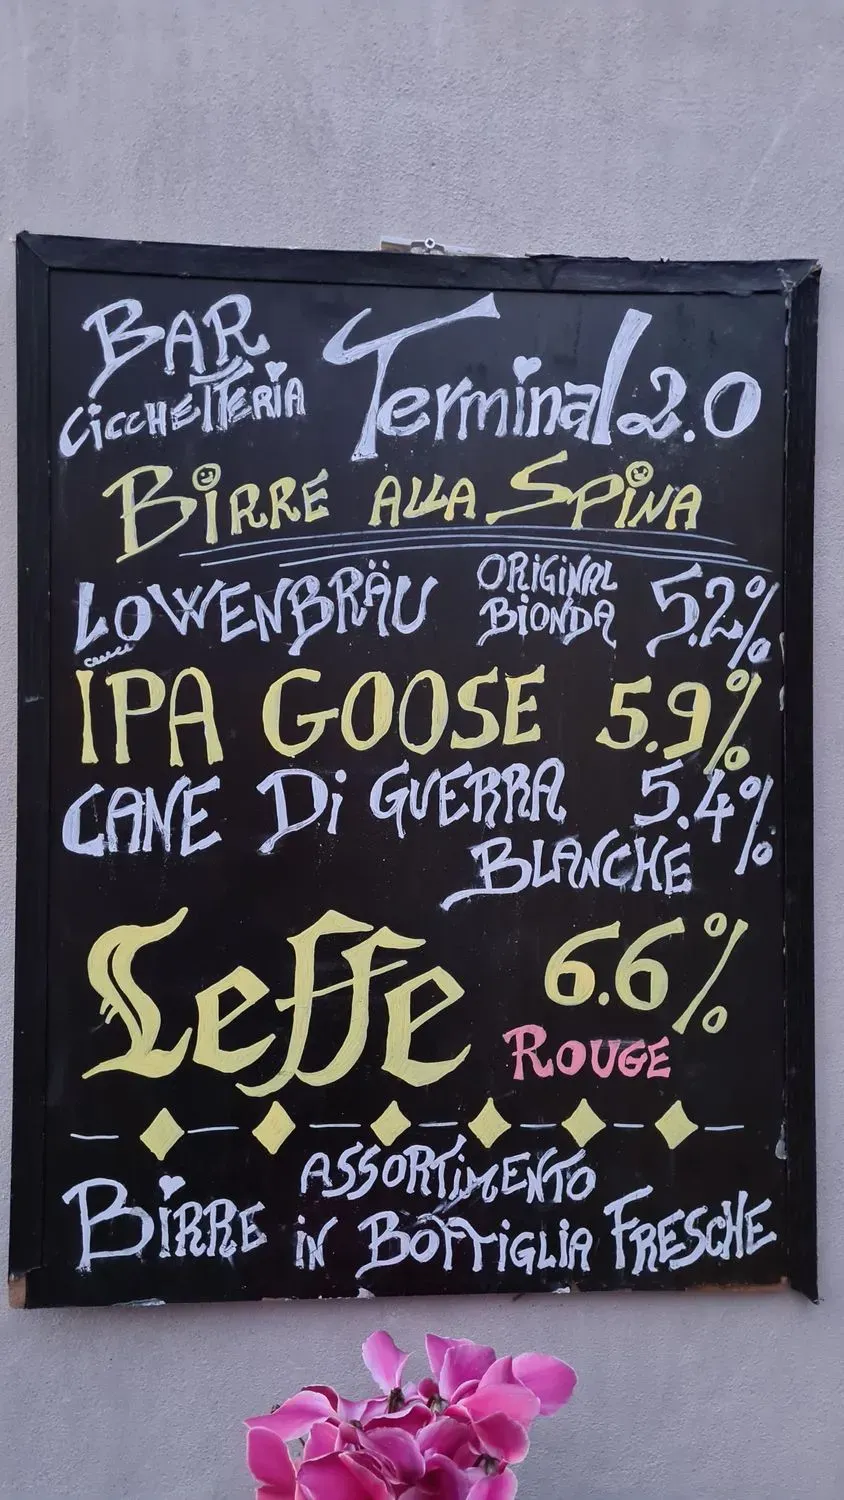 BAR
CiCCHETTERIA Terminal 2.0
BiRRE ALLA SPiNA
LOWENBRÄU ORiGiNAL
BiONDA 5.2%
IPA GOOSE 5.9%
CANE Di GUERRA 5.4%
BLANCHE
Leffe 6.6%
ROUGE
ASSORTiMENTO
BiRRE iN BOTTiGLiA FRESCHE